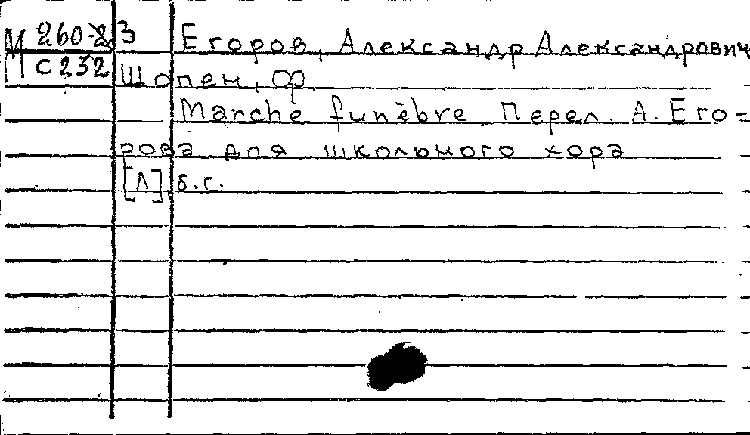 М 260-23 Егоров, Александр Александрович
М С232 Шопен, Ф
Marche funèbre Перел. А. Его=
рова для школьного хора
[Л] б.г.